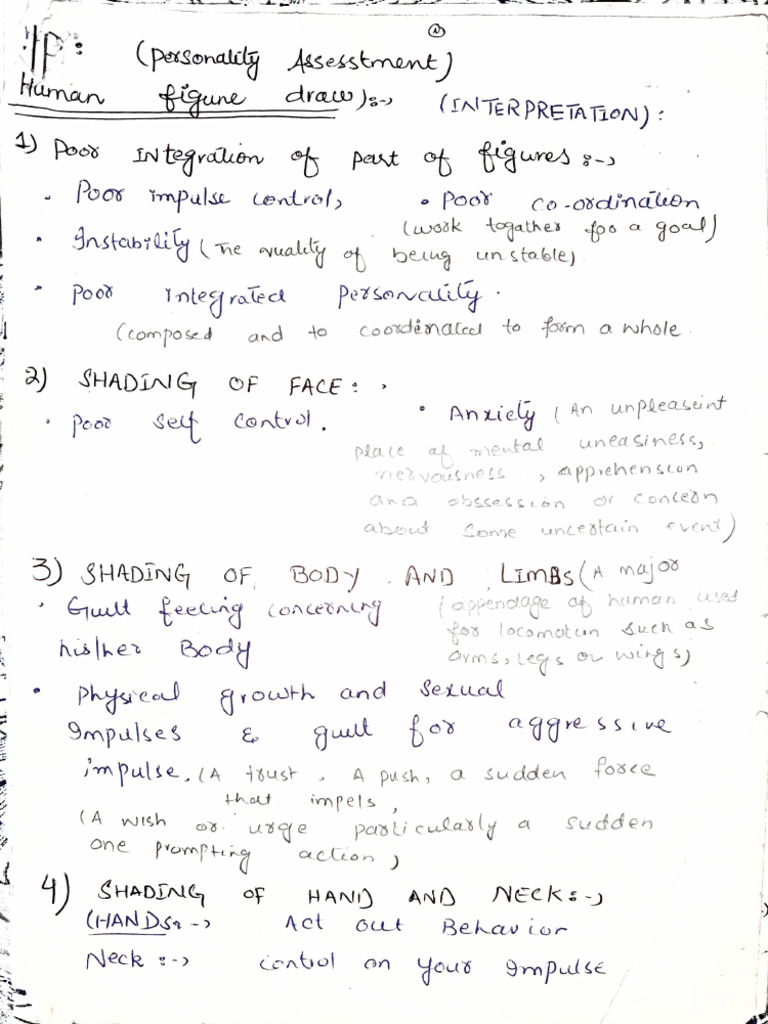 HP: (Personality Assesstment)
Human figune draw):-, (INTERPRETATION):
1) Poor INtegration of part of figures:-,
• Poor impulse control, • Poor co-ordination
(work togather foo a goal)
• Instability (The quality of being unstable,
• Poor Integrated Personality.
(composed and to coordinated to form a whole
2) SHADING OF FACE: ,
• Poor self control. • Anxiety (An unpleaseint
place of mental uneasiness,
nervousness, apprehension
and obssession or concern
about some uncertain event)
3) SHADING OF BODY AND LIMBS (A major
• Guilt feeling concerning (appendage of human uses
his/her Body for locomotion such as
arms, legs or wings,)
• Physical growth and sexual
Impulses & guilt for aggressive
impulse. (A trust, A push, a sudden force
that impels,
(A wish or urge particularly a sudden
one prompting action,)
4) SHADING OF HAND AND NECK:-,
(HANDS:-, Act out Behavior
Neck:-, control on your Impulse